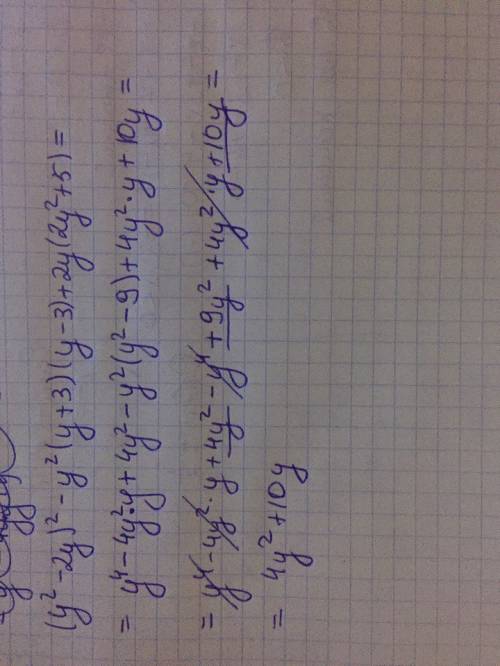 (y² - 2y)² - y²(y+3)(y-3)+2y(2y²+5)=
= y⁴ - 4y²·y + 4y² - y²(y² - 9) + 4y²·y + 10y =
= y⁴ - 4y²·y + 4y² - y⁴ + 9y² + 4y²·y + 10y =
= 4y² + 10y